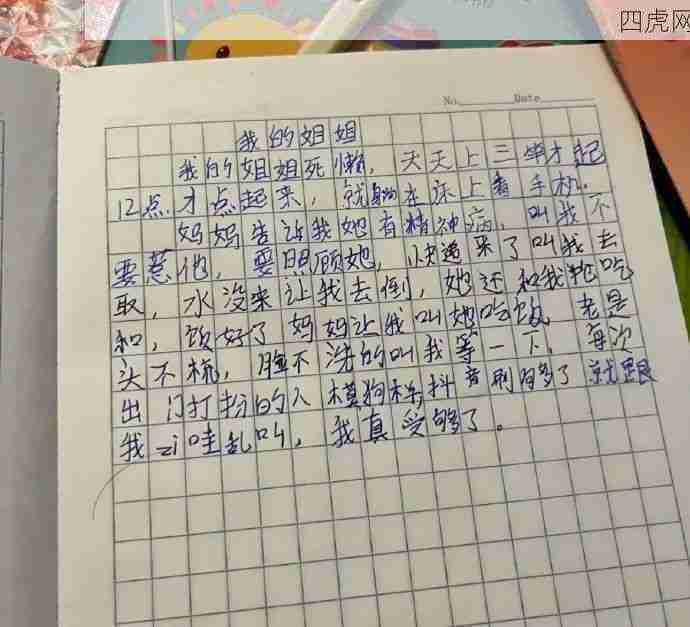 四虎网
No. Date
我的姐姐
我的姐姐死懒，天天上三年才起
12点才点起来，就躺在床上看手机。
妈妈告诉我她有精神病，叫我不
要惹他，要照顾她，快递来了叫我去
取，水没来让我去倒，她还和我抢吃
和，饭好了妈妈让我叫她吃饭，老是
头不梳，脸不洗的叫我等一下，每次
出门打扮的人模狗样抖音刷多了就跟
我zi哇乱叫，我真受够了。